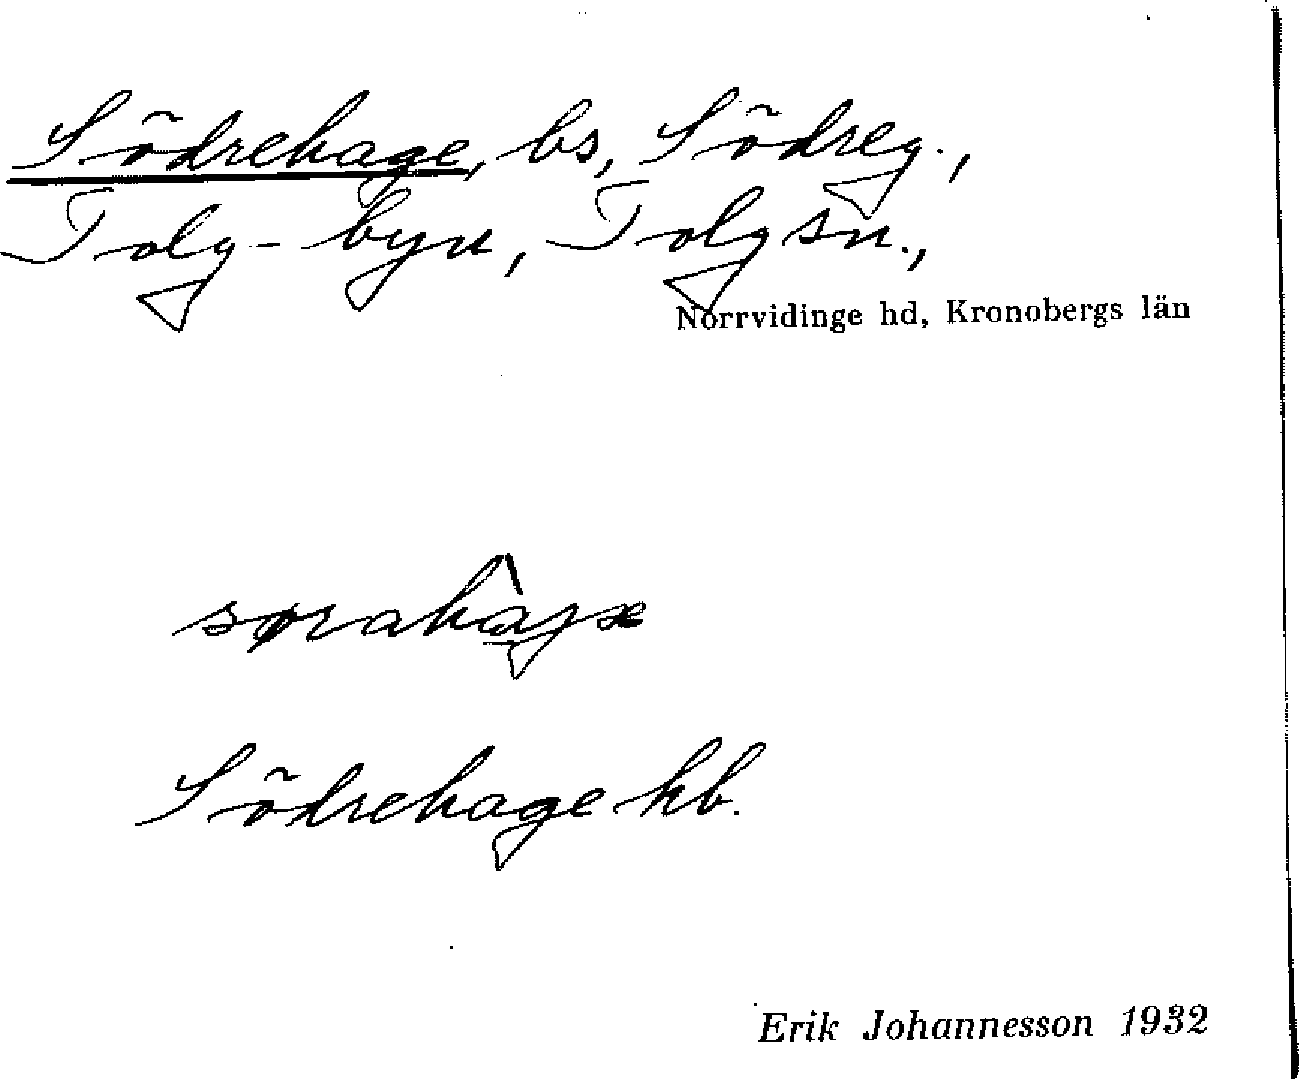 Södrehage, bs, Södreg.,
Tolg-byn, Tolg sn.,
Norrvidinge hd, Kronobergs län
sørahagæ
Södrehage hb.
Erik Johannesson 1932